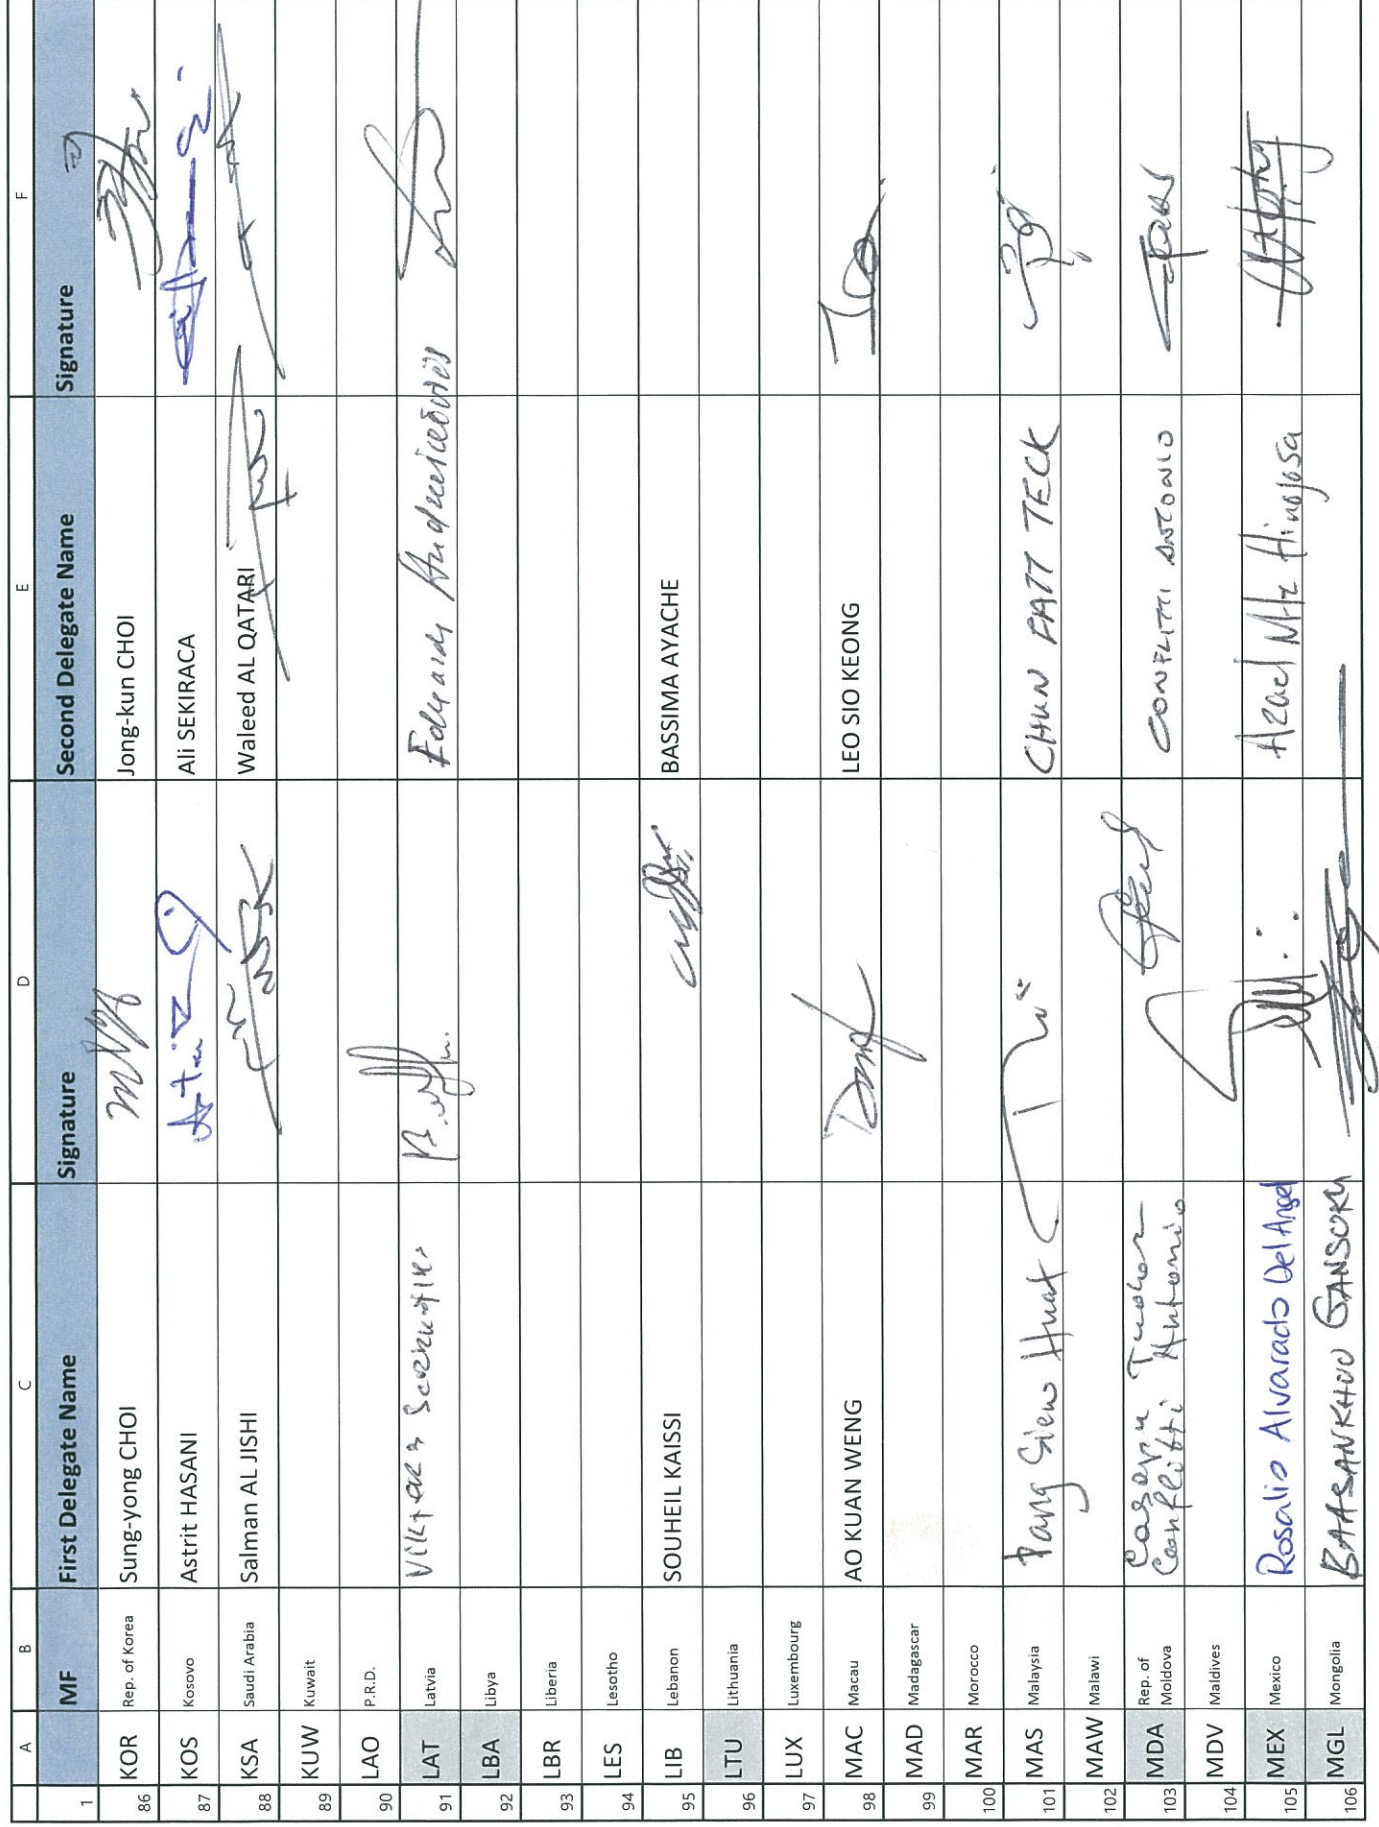 A B C D E F
1 MF First Delegate Name Signature Second Delegate Name Signature
86 KOR Rep. of Korea Sung-yong CHOI Jong-kun CHOI
87 KOS Kosovo Astrit HASANI Ali SEKIRACA
88 KSA Saudi Arabia Salman AL JISHI Waleed AL QATARI
89 KUW Kuwait
90 LAO P.R.D.
91 LAT Latvia
92 LBA Libya
93 LBR Liberia
94 LES Lesotho
95 LIB Lebanon SOUHEIL KAISSI BASSIMA AYACHE
96 LTU Lithuania
97 LUX Luxembourg
98 MAC Macau AO KUAN WENG LEO SIO KEONG
99 MAD Madagascar
100 MAR Morocco
101 MAS Malaysia Pang Siew Huat CHUN FATT TECK
102 MAW Malawi
103 MDA Rep. of
Moldova Conflitti Antonio CONFLITTI ANTONIO
104 MDV Maldives
105 MEX Mexico Rosalio Alvarado Del Angel Azael Mtz Hinojosa
106 MGL Mongolia BAASANKHUU GANSUKH